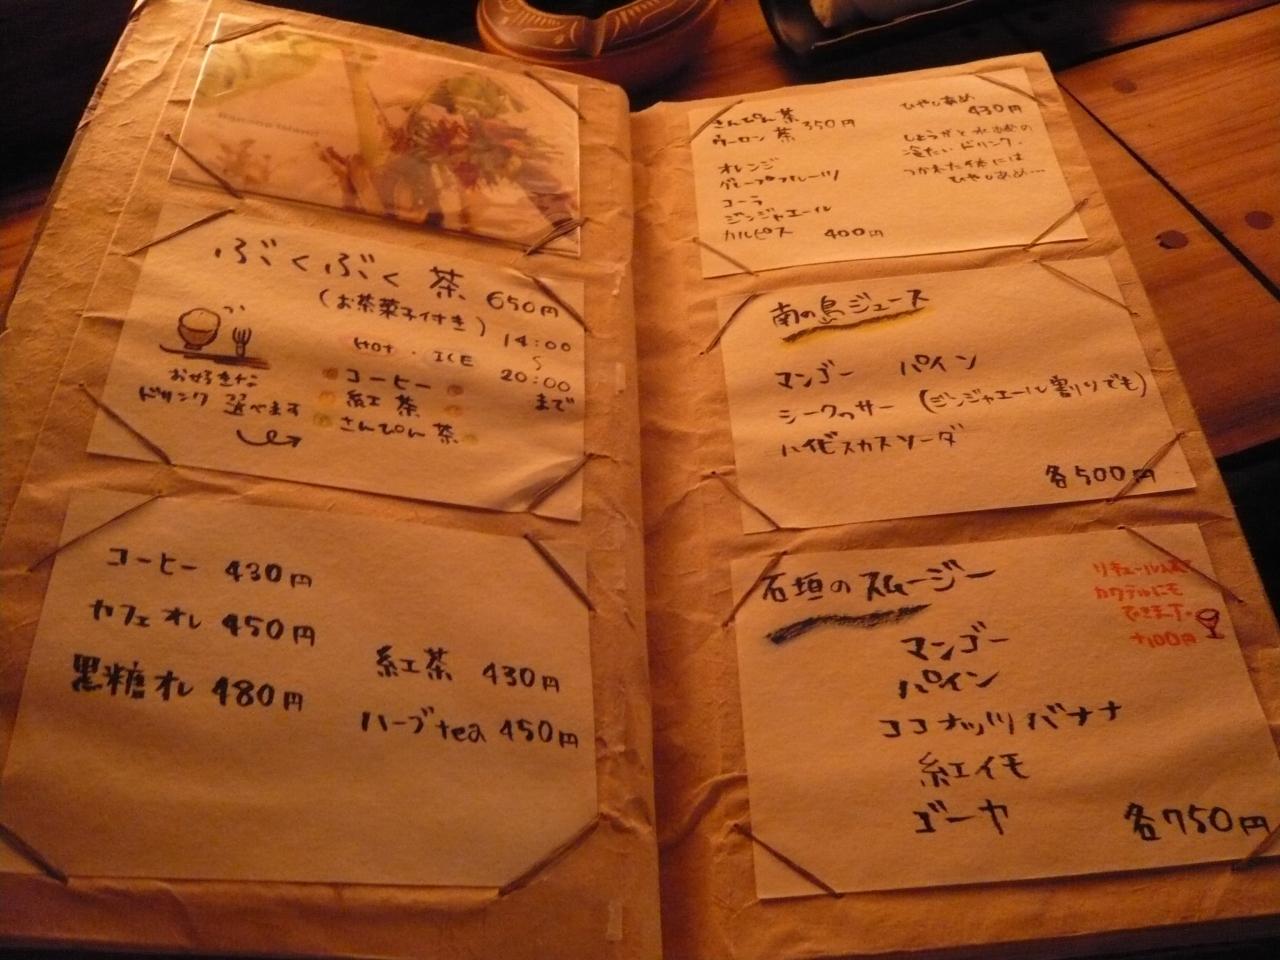 Banana Island
ぶくぶく茶 650円
(お茶菓子付き) 14:00
HOT・ICE 〜
コーヒー 20:00
紅茶 まで
さんぴん茶
お好きな
ドリンク 選べます
コーヒー 430円
カフェオレ 450円
黒糖オレ 480円
紅茶 430円
ハーブtea 450円
さんぴん茶
ウーロン茶 350円
オレンジ
グレープフルーツ
コーラ
ジンジャエール
カルピス 400円
ひやしあめ
430円
しょうがと水あめの
冷たいドリンク。
つかれた体には
ひやしあめ…
南の島ジュース
マンゴー パイン
シークヮサー (ジンジャエール割りでも)
ハイビスカスソーダ
各500円
石垣のスムージー
リキュール入れて
カクテルにも
できます。
+100円
マンゴー
パイン
ココナッツバナナ
紅イモ
ゴーヤ
各750円